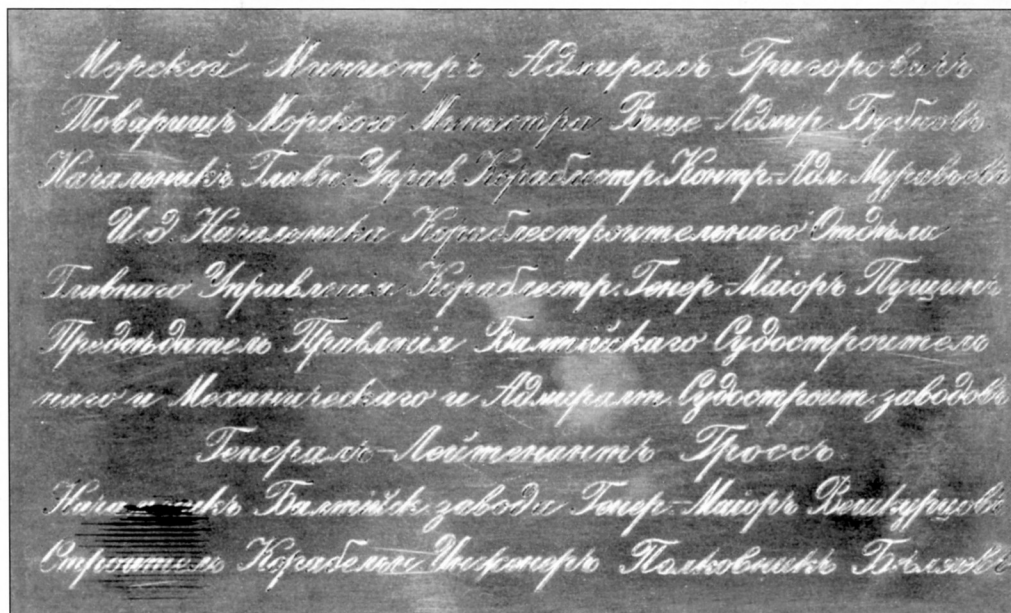 Морской Министръ Адмиралъ Григоровичъ
Товарищъ Морского Министра Вице-Адмир. Бубновъ
Начальникъ Главн. Управ. Кораблестр. Контр.-Адм. Муравьевъ
И. Э. Начальника Кораблестроительнаго Отдѣла
Главнаго Управленія Кораблестр. Генер. Маіоръ Пущинъ
Предсѣдатель Правленія Балтійскаго Судостроитель
наго и Механическаго и Адмиралт. Судостроит. заводовъ
Генералъ-Лейтенантъ Гроссъ
Начальникъ Балтійск. завода Генер.-Маіоръ Вешкурцовъ
Строитель Корабельн. Инженеръ Полковникъ Бѣляевъ